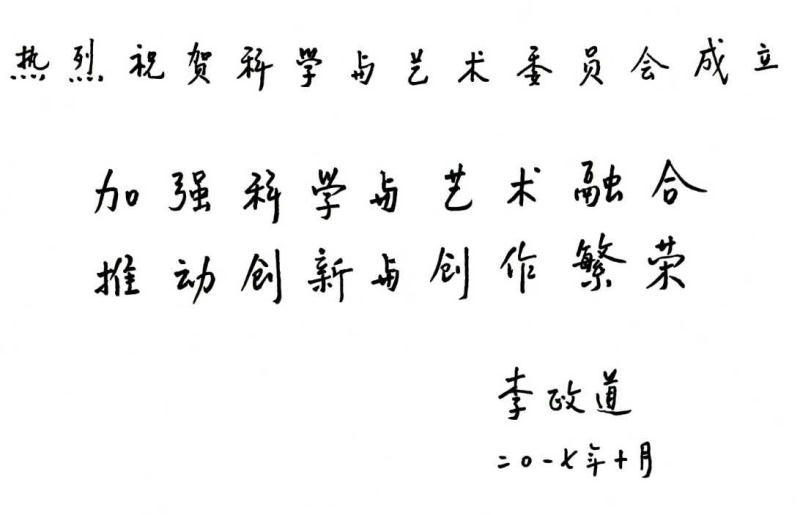 热烈祝贺科学与艺术委员会成立
加强科学与艺术融合
推动创新与创作繁荣
李政道
二〇一七年十月